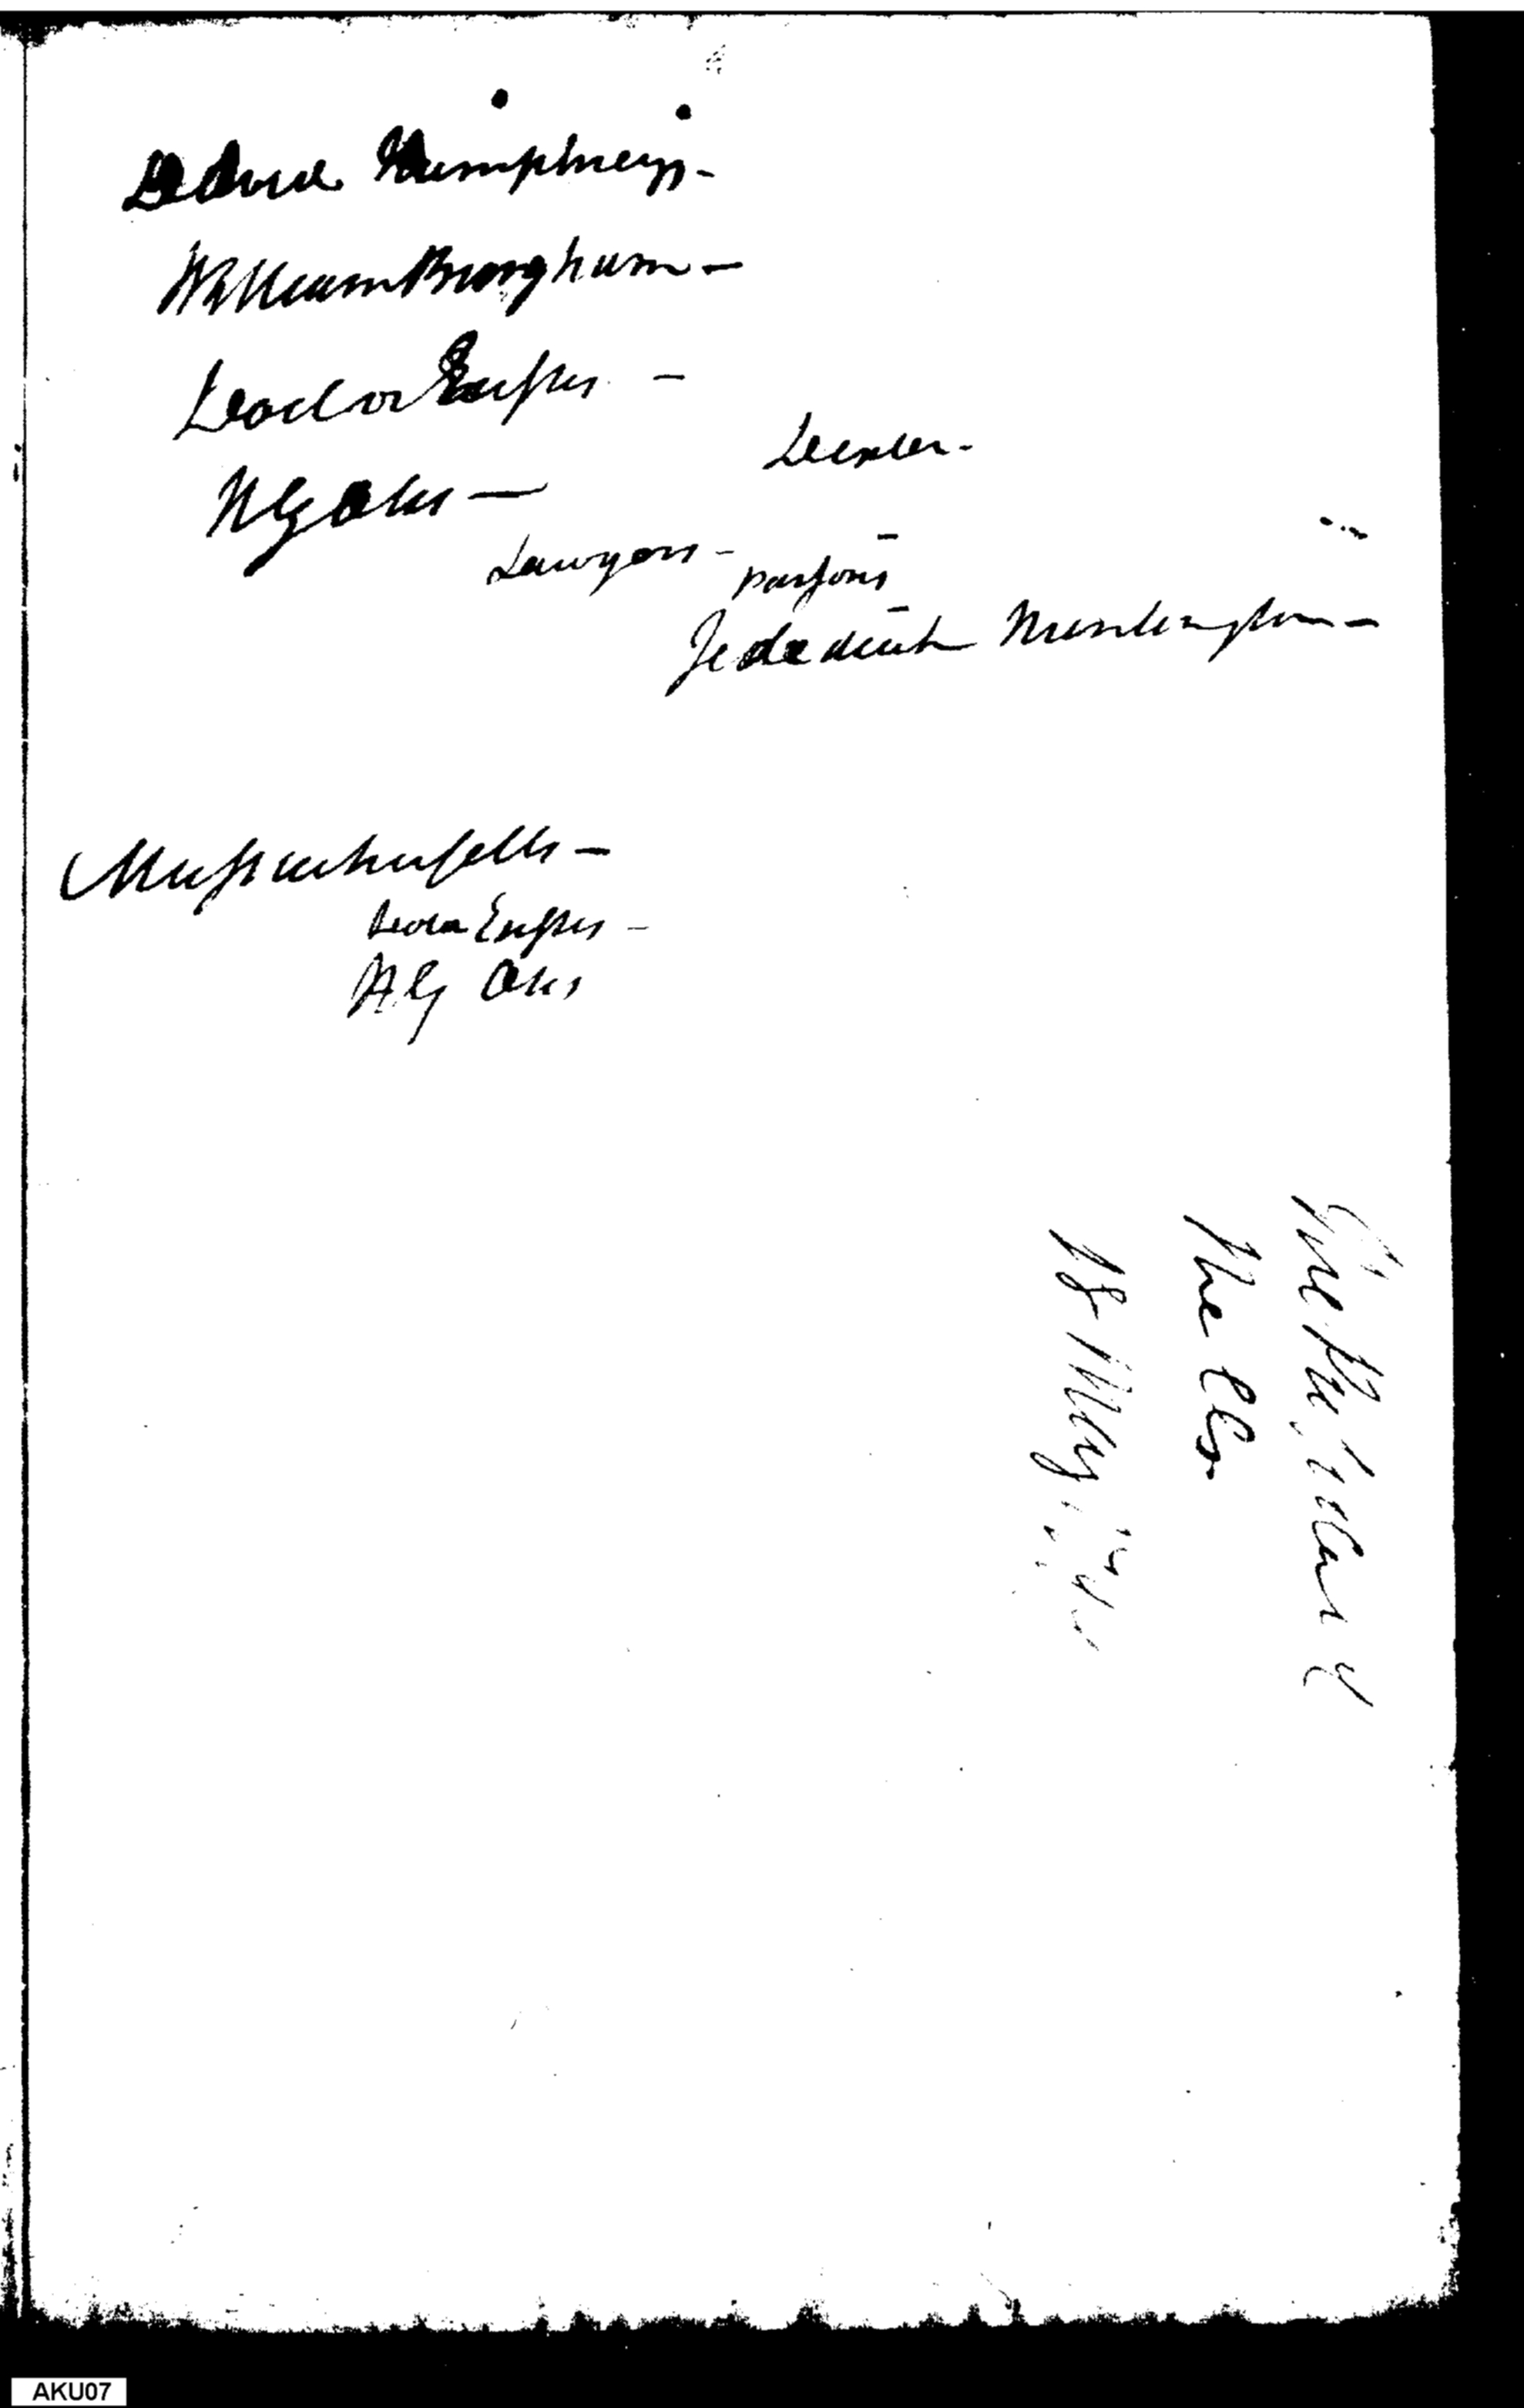 David Humphreys -
William Bingham -
Doctor Eustis -
H G Otis -
Dexter -
Lawyers -
parsons
Jedediah Huntington -
Massachusetts -
Doctr Eustis -
H G Otis
The
18 May
AKU07